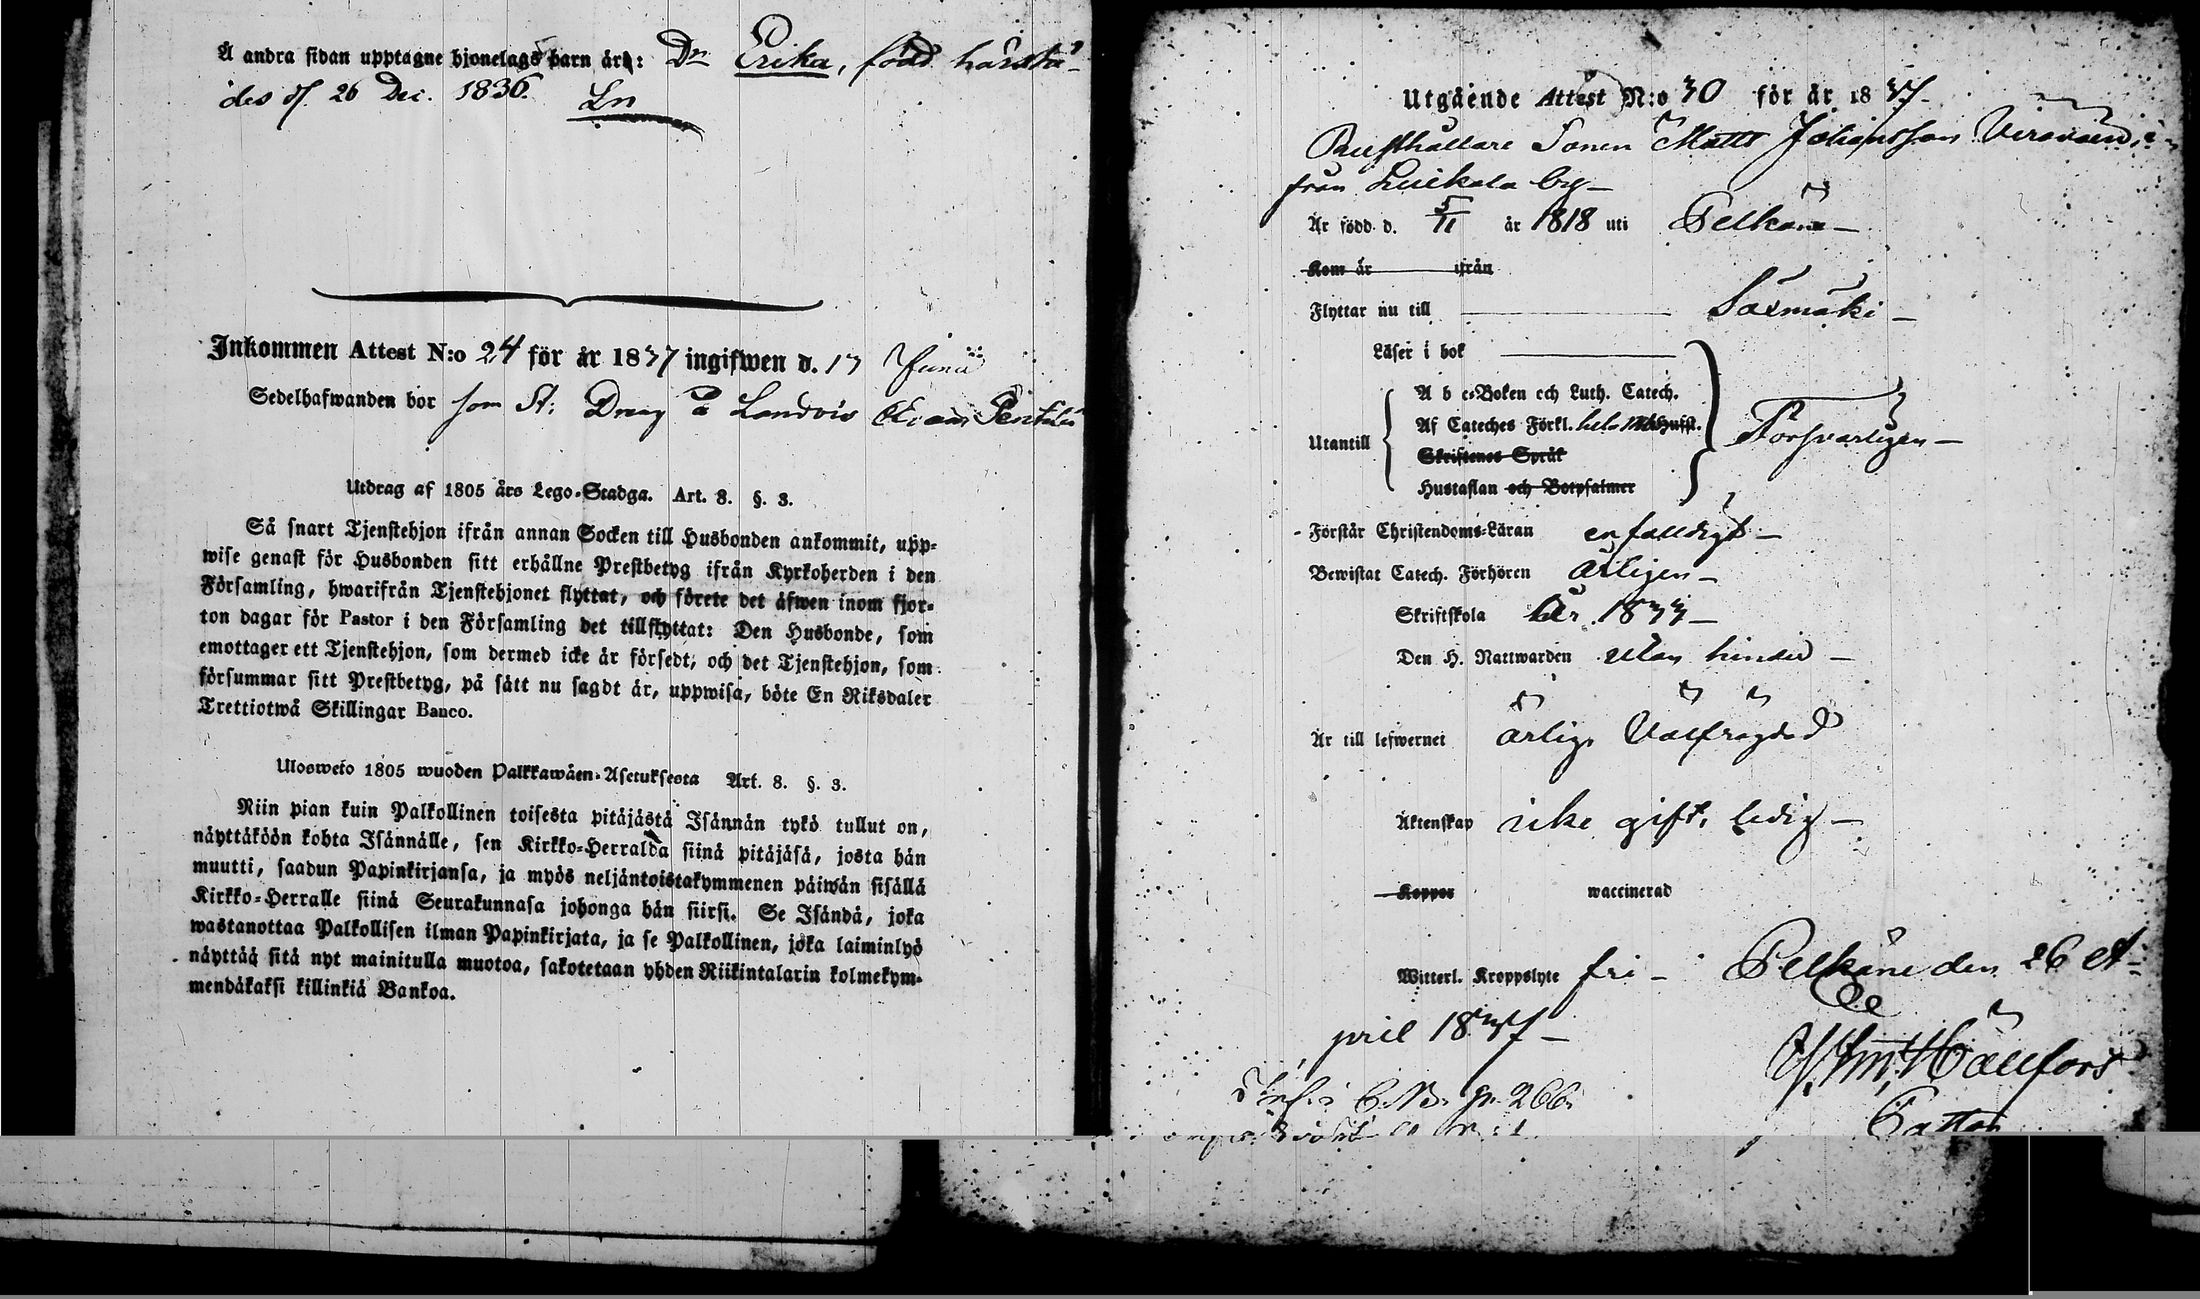 Å andra sidan upptagne hjonelags barn äro: Dr Erika, född härstä-
des d. 26 Dec. 1836.
Inkommen Attest N:o 24 för år 1837 ingifwen d. 13 Junii
Sedelhafwanden bor som St: Dräng på
Utdrag af 1805 års Lego-Stadga. Art. 8. §. 3.
Så snart Tjenstehjon ifrån annan Socken till Husbonden ankommit, upp-
wise genast för Husbonden sitt erhållne Prestbetyg ifrån Kyrkoherden i den
Församling, hwarifrån Tjenstehjonet flyttat, och förete det äfwen inom fjor-
ton dagar för Pastor i den Församling det tillflyttat: Den Husbonde, som
emottager ett Tjenstehjon, som dermed icke är försedt, och det Tjenstehjon, som
försummar sitt Prestbetyg, på sätt nu sagdt är, uppwisa, böte En Riksdaler
Trettiotwå Skillingar Banco.
Ulosweto 1805 wuoden Palkkawäen-Asetuksesta Art. 8. §. 3.
Niin pian kuin Palkollinen toisesta pitäjästä Isännän tykö tullut on,
näyttäköön kohta Isännälle, sen Kirkko-Herralda siinä pitäjäsä, josta hän
muutti, saadun Papinkirjansa, ja myös neljäntoistakymmenen päiwän sisällä
Kirkko-Herralle siinä Seurakunnasa johonga hän siirsi. Se Isändä, joka
wastanottaa Palkollisen ilman Papinkirjata, ja se Palkollinen, joka laiminlyö
näyttää sitä nyt mainitulla muotoa, sakotetaan yhden Riikintalarin kolmekym-
mendäkaksi killinkiä Bankoa.
Utgående Attest N:o 30 för år 1837
Rusthållare Sonen Matts Johansson
från Luikala by
Är född d. 5/11 år 1818 uti Pelkäne
Kom år ifrån
Flyttar nu till Säxmäki
Läser i bok
A b c-Boken och Luth. Catech.
Af Cateches Förkl. hela
Utantill
Försvarligen
Skriftenes Språk
Hustaflan och Botpsalmer
Förstår Christendoms-Läran enfaldigt
Bewistat Catech. Förhören årligen
Skriftskola År 1833
Den H. Nattwarden utan hinder
Är till lefwernet ärlig, välfrägdad
Äktenskap icke gift, ledig
Koppor waccinerad
Witterl. Kroppslyte fri Pelkäne den 26 A-
pril 1837